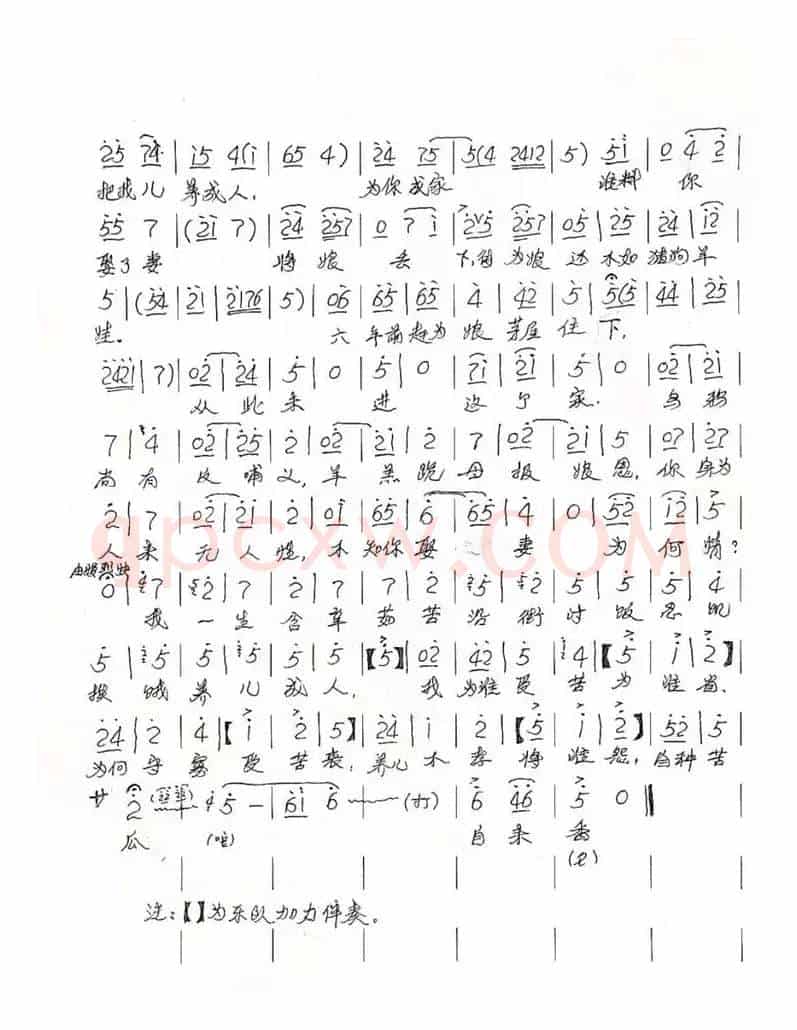 2̇5̇ 7̇4̇ | i5 4(i | 65 4) | 2̇4̇ 7̇5 | 5(4 2412 | 5) 5̇i | 0 4̇ 2̇ |
把我儿 养成人, 为你成家 谁料 你
5̇5̇ 7 | (2̇i 7) | 2̇4̇ 2̇5̇7 | 0 7 i | 2̇5̇ 2̇5̇7 | 05̇ | 2̇5̇ | 2̇4̇ | i2̇ |
娶了妻 将娘 丢 下, 为娘还不如猪狗羊
5 | (5̇4̇ | 2̇i | 2̇i76 | 5) | 06̇ | 6̇5̇ | 6̇5̇ | 4̇ | 4̇2̇ | 5̇ | 5̇(5̇ | 4̇4̇ | 2̇5̇ |
娃. 六年前赶为娘茅屋住下,
2̇4̇2̇i | 7) | 02̇ | 2̇4̇ | 5̇ | 0 | 5̇ | 0 | 7i | 2̇i | 5 | 0 | 02̇ | 2̇i |
从此未 进 这个家. 乌鸦
7 | 4̇ | 02̇ | 2̇5̇ | 2̇ | 02̇ | 2̇i | 2̇ | 7 | 02̇ | 2̇i | 5 | 07 | 2̇7 |
尚有反哺义, 羊羔跪母报娘恩, 你身为
2̇ | 7 | 02̇ | 2̇i | 2̇ | 0i | 6̇5̇ | 6̇ | 6̇5̇ | 4̇ | 0 | 5̇2̇ | i2̇ | 5̇ |
人来无人性, 不知你娶 妻 为何情?
qpcxw.com
0 | 7 | 2̇ | 7 | 2̇ | 7 | 7 | 2̇ | 5̇ | 5̇ | 5̇ | 5̇ | 5̇ | 4̇
我一生含辛茹苦沿街讨饭忍饥
5̇ | 5̇ | 5̇ | 5̇ | 5̇ | 5̇ | 【5̇】 | 02̇ | 4̇2̇ | 5̇ | 4̇ | 【5̇ | i | 2̇】 |
挨饿养儿成人, 我为谁受苦为谁省,
2̇4̇ | 2̇ | 4̇ | 【i | 2̇ | 5】 | 2̇4̇ | i | 2̇ | 【5̇ | i | 2̇】 | 5̇2̇ | 5̇ |
为何守寡受苦衷, 养儿不孝将谁怨, 自种苦
サ 2̇ 5̇ — | 6̇i 6̇ (打) | 6̇ 4̇6̇ | 5̇ 0 ‖
瓜, (咹) 自来 吞
注:【】为乐队加力伴奏。